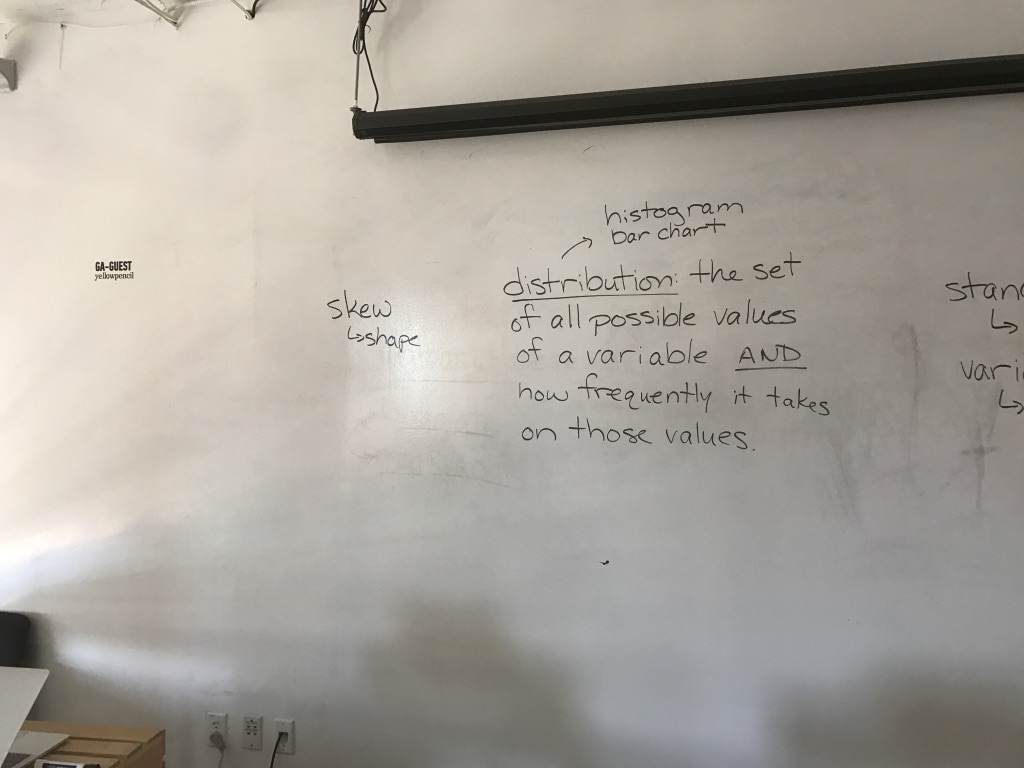 GA-GUEST
yellowpencil
skew
↳shape
histogram
bar chart
distribution: the set
of all possible values
of a variable AND
how frequently it takes
on those values.